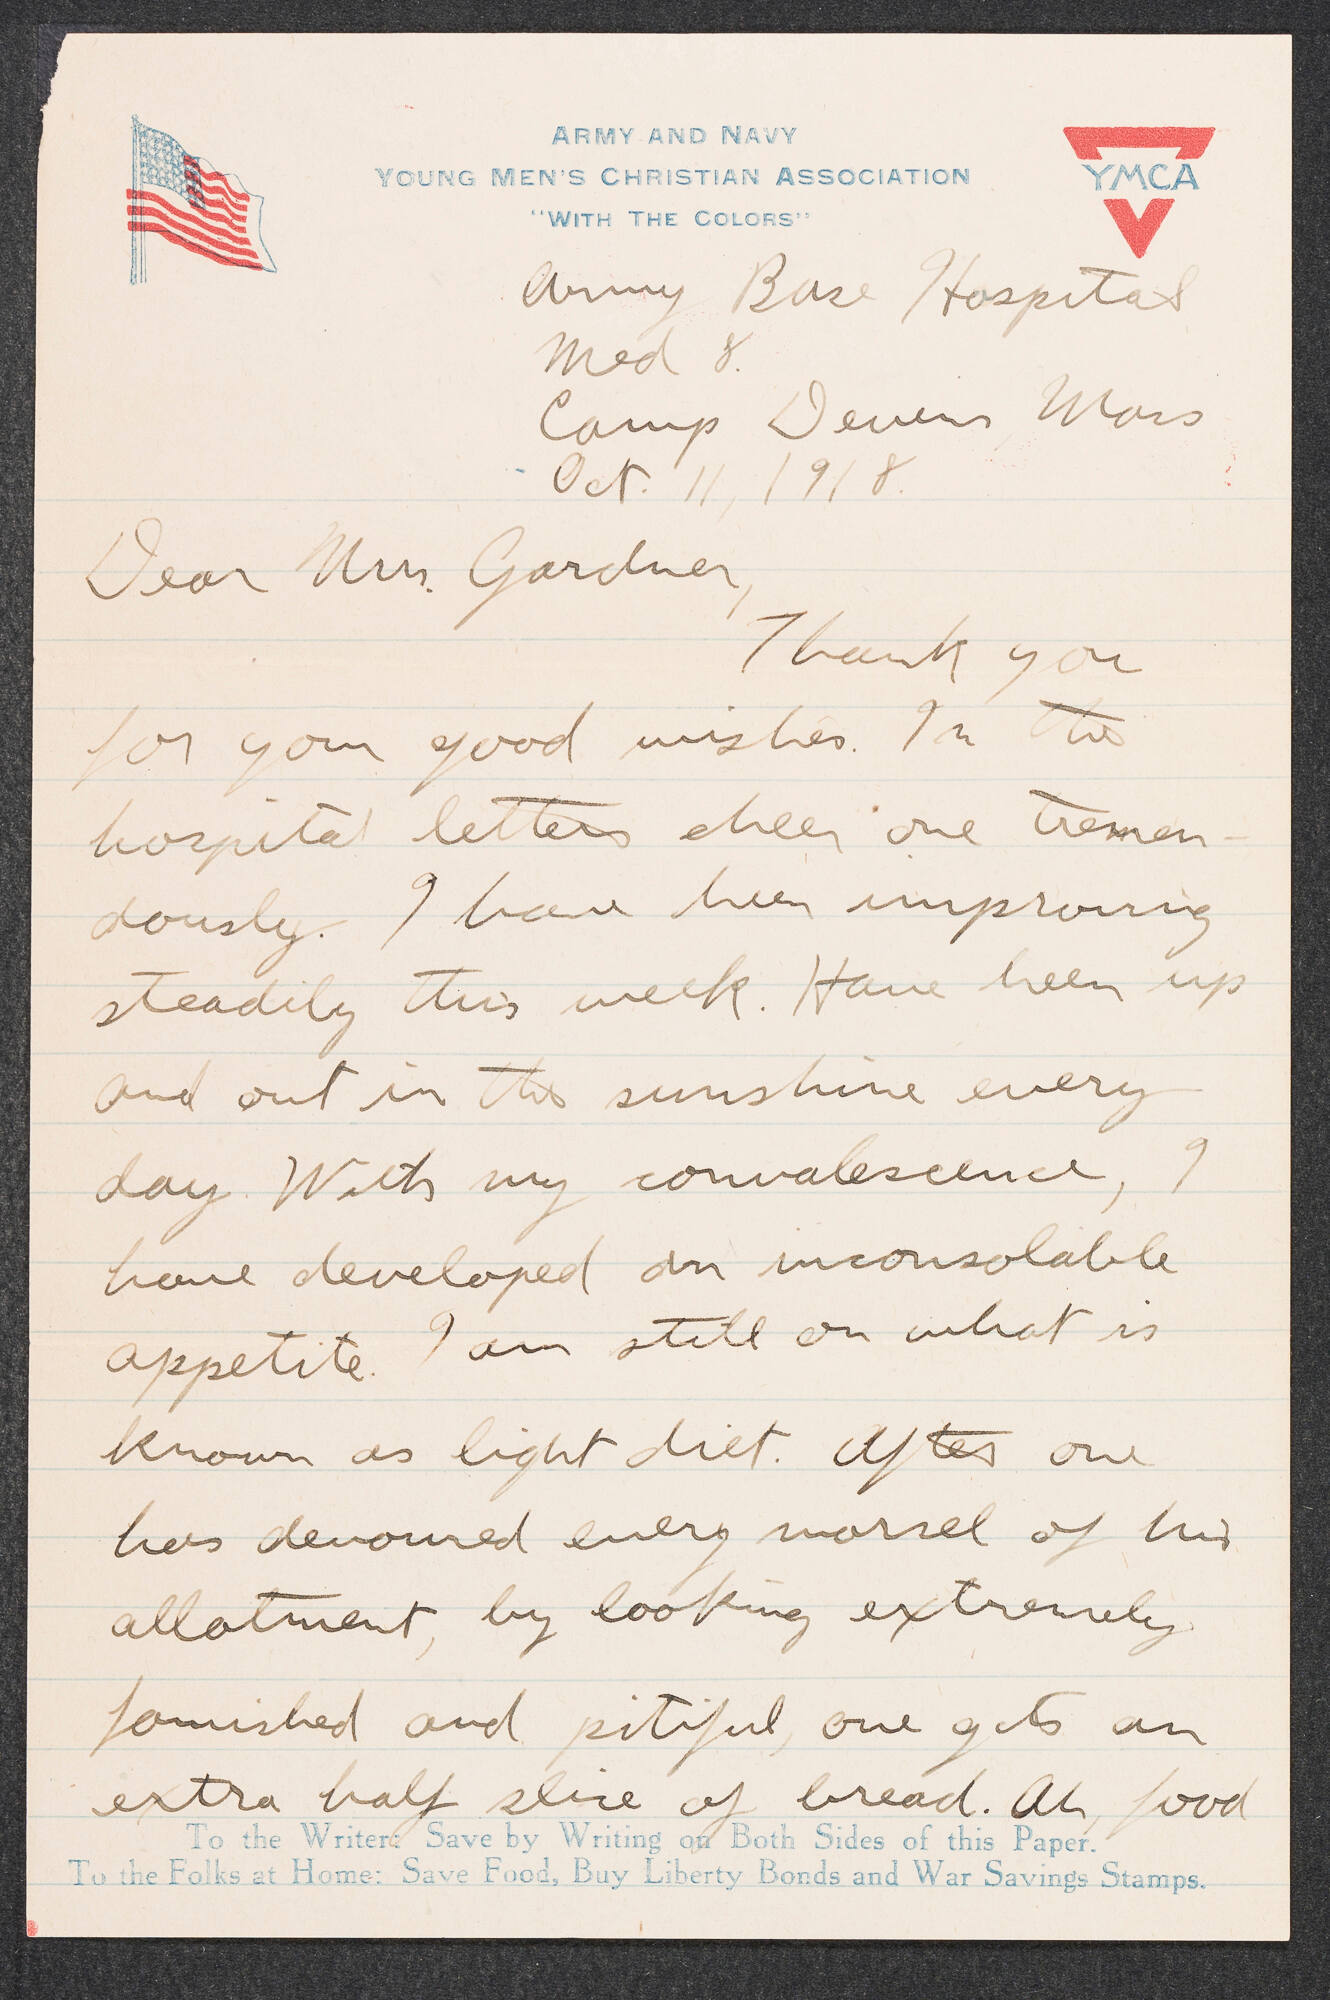 ARMY AND NAVY
YOUNG MEN'S CHRISTIAN ASSOCIATION
"WITH THE COLORS"
YMCA
Army Base Hospital
Med 8.
Camp Devens, Mass
Oct. 11, 1918.
Dear Mrs. Gardner,
Thank you
for your good wishes. In the
hospital letters cheer one tremen-
dously. I have been improving
steadily this week. Have been up
and out in the sunshine every
day. With my convalescence, I
have developed an inconsolable
appetite. I am still on what is
known as light diet. After one
has devoured every morsel of his
allotment, by looking extremely
famished and pitiful, one gets an
extra half slice of bread. Ah, food
To the Writer: Save by Writing on Both Sides of this Paper.
To the Folks at Home: Save Food, Buy Liberty Bonds and War Savings Stamps.